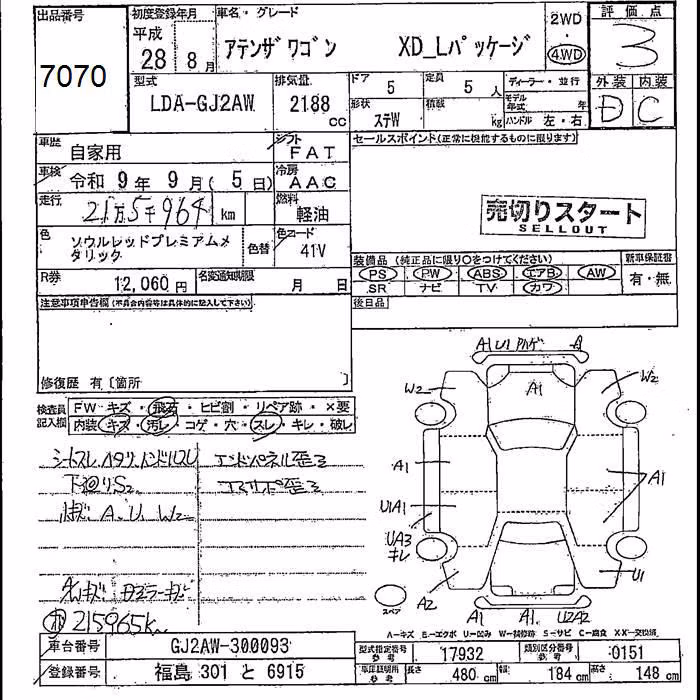 出品番号
7070
初度登録年月
平成
28 8月
車名・グレード
アテンザワゴン XD_Lパッケージ
2WD
・
4WD
評価点
3
外装 内装
D C
型式
LDA-GJ2AW
排気量
2188
cc
ドア 5
定員 5人
形状
ステW
積載
kg
ディーラー・並行
モデル年式 年
ハンドル 左・右
車歴
自家用
シフト
FAT
車検
令和 9年 9月 ( 5日)
冷房
AAC
走行
21万5千964 km
燃料
軽油
色
ソウルレッドプレミアムメタリック
色替
色コード
41V
R券
12,060円
名変通知期限
月 日
セールスポイント(正常に機能するものに限ります)
売切りスタート
SELLOUT
装備品(純正品に限り○をつけてください)
新車保証書
PS PW ABS エアB AW
有・無
SR ナビ TV カワ
後日品
注意事項申告欄(不具合内容等は具体的に記入して下さい)
修復歴 有〔箇所 〕
検査員記入欄
FW キズ・飛石・ヒビ割・リペア跡・×要
内装 キズ・汚レ・コゲ・穴・スレ・キレ・破レ
シートスレ ハンドルスレ
エンドパネル歪ミ
下回りS2
A.U.W2
215965K
A1 U1 A
W2 A1 W2
A1
U1A1
A1
UA3
キレ
A2
U1
A1 A1 U2A2
スペア
A-キズ E-エクボ U-凹み W-補修跡 S-サビ C-腐食 XX-交換済
車台番号
GJ2AW-300093
登録番号
福島 301 と 6915
型式指定番号
参考
17932
類別区分番号
参考
0151
車庫証明用
参考
長さ 480cm
幅 184cm
高さ 148cm